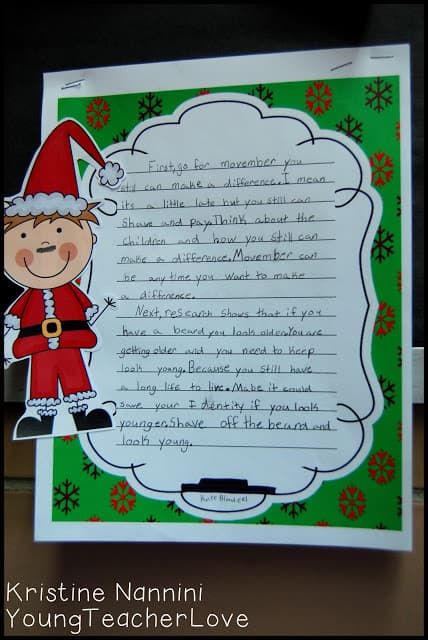 First, go for movember you
still can make a difference. I mean
its a little late but you still can
Shave and pay. Think about the
children and how you still can
make a difference. Movember can
be any time you want to make
a difference.
Next, research shows that if you
have a beard you look older. You are
getting older and you need to keep
look young. Because you still have
a long life to live. Mabe it could
save your Identity if you look
younger. Shave off the beard and
look young.
Kristine Nannini
YoungTeacherLove